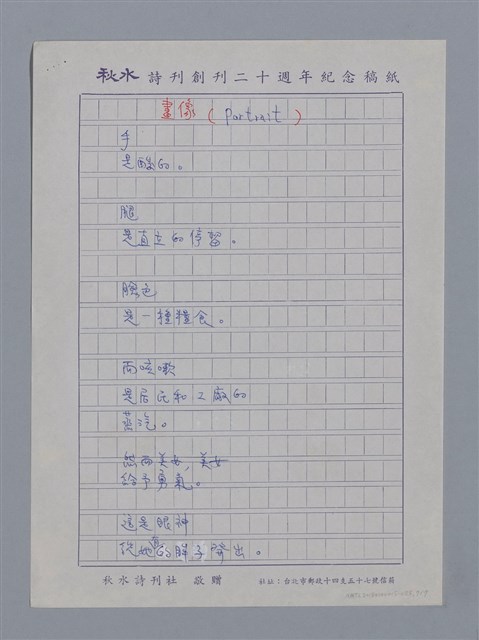 秋水 詩刊創刊二十週年紀念稿紙
畫像 ( portrait )
手
是酸的。
腿
是直立的停留。
臉色
是一種糧食。
而咳嗽
是居民和工廠的
蒸汽。
然而美女，美女
給予勇氣。
這是眼神
從她的胖子擠出。
秋水詩刊社 敬贈
社址：台北市郵政十四支五十七號信箱